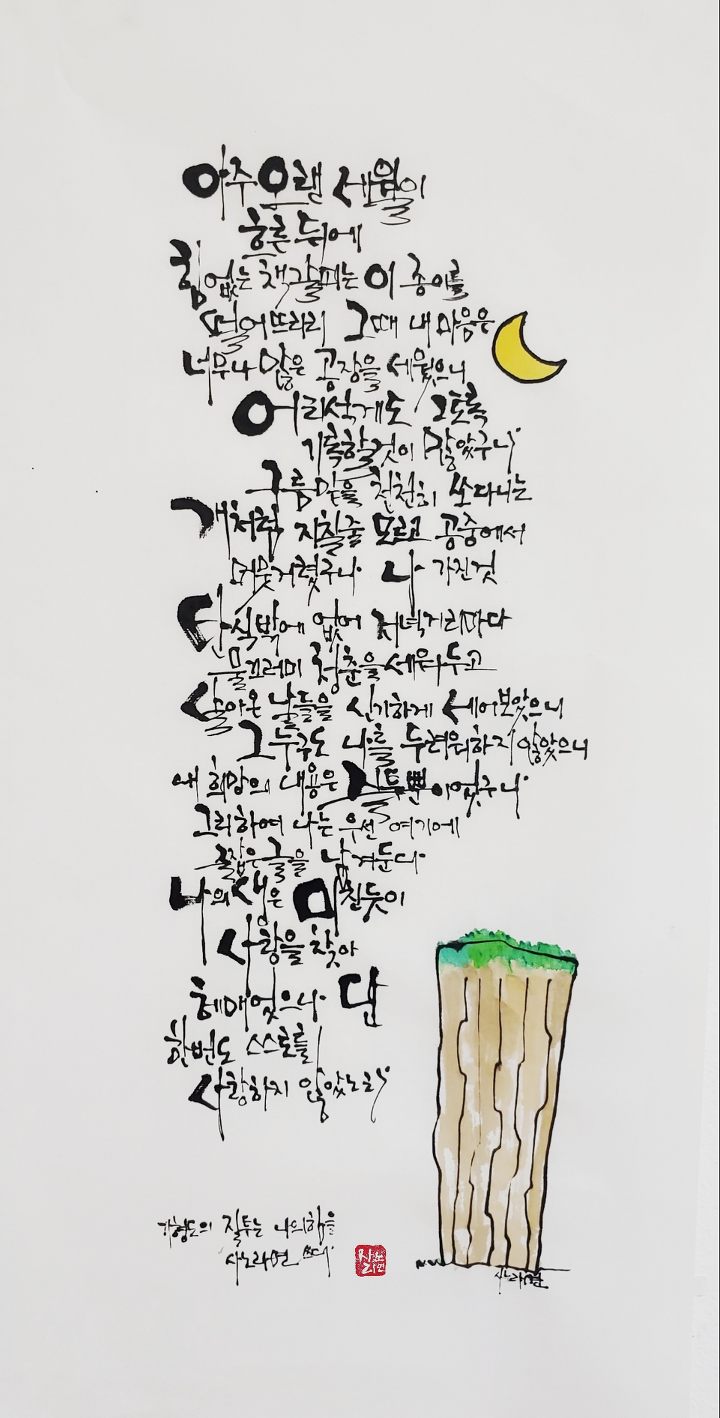 아주 오랜 세월이
흐른 뒤에
힘 없는 책갈피는 이 종이를
떨어뜨리리 그때 내 마음은
너무나 많은 공장을 세웠으니
어리석게도 그토록
기록할 것이 많았구나
구름 밑을 천천히 쏘다니는
개처럼 지칠줄 모르고 공중에서
머뭇거렸구나 나 가진것
탄식밖에 없어 저녁거리마다
물끄러미 청춘을 세워두고
살아온 날들을 신기하게 세어보았으니
그 누구도 나를 두려워하지 않았으니
내 희망의 내용은 질투뿐이었구나
그리하여 나는 우선 여기에
짧은 글을 남겨둔다
나의 생은 미친듯이
사랑을 찾아
헤매었으나 단
한번도 스스로를
사랑하지 않았노라
기형도의 질투는 나의 힘을
사노라면 쓰다
사노라면